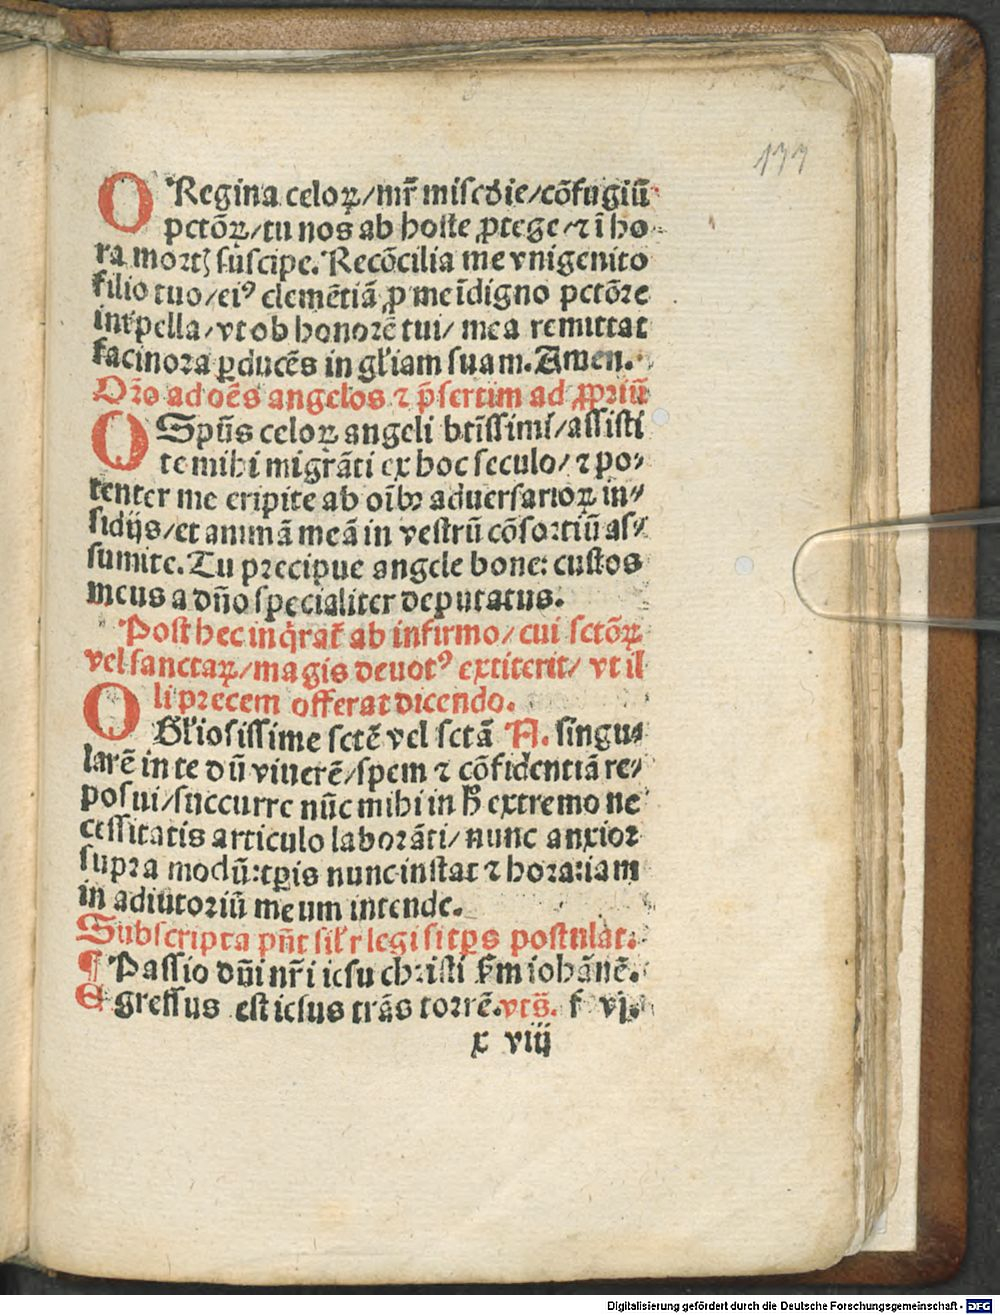 177
O Regina celoꝝ/mr̄ miſcdie/cōfugiū
pctōꝝ/tu nos ab hoſte ꝓtege/⁊ ī ho⸗
ra mortꝫ ſuſcipe. Recōcilia me vnigenito
filio tuo/eiꝰ clemētiā ꝓ me īdigno pctōꝛe
int̄pella/vt ob honorē tui/mea remittat
facinoꝛa ꝑducēs in gl̄iam ſuam. Amen.
Oꝛ̄o ad oēs angelos ⁊ p̄ſertim ad ꝓpꝛiū
O Spūs celoꝝ angeli btīſſimi/aſſiſti
te mihi migrāti ex hoc ſeculo/⁊ po⸗
tenter me eripite ab oībꝰ aduerſarioꝝ in⸗
ſidijs/et animā meā in veſtrū cōſoꝛtiū aſ⸗
ſumite. Tu pꝛecipue angele bone: cuſtos
meus a dn̄o ſpecialiter deputatus.
Poſt hec inq̄rat᷑ ab infirmo/cui ſctōꝝ
vel ſanctaꝝ/magis deuotꝰ extiterit/vt il
li pꝛecem offerat dicendo.
O Gl̄ioſiſſime ſctē vel ſctā N. ſingu⸗
larē in te dū viuerē/ſpem ⁊ cōfidentiā re⸗
poſui/ſuccurre nūc mihi in h̄ extremo ne
ceſſitatis articulo laboꝛāti/nunc anxioꝛ
ſupꝛa modū: tꝑis nunc inſtat ⁊ hoꝛa: iam
in adiutoꝛiū meum intende.
Subſcripta pn̄t ſil̄r legi ſi tꝑs poſtulat.
¶ Paſſio dn̄i nr̄i ieſu chꝛiſti ẜm iohānē.
Egreſſus eſt ieſus trās toꝛrē. vts̄. f vj.
x viij
Digitalisierung gefördert durch die Deutsche Forschungsgemeinschaft - DFG